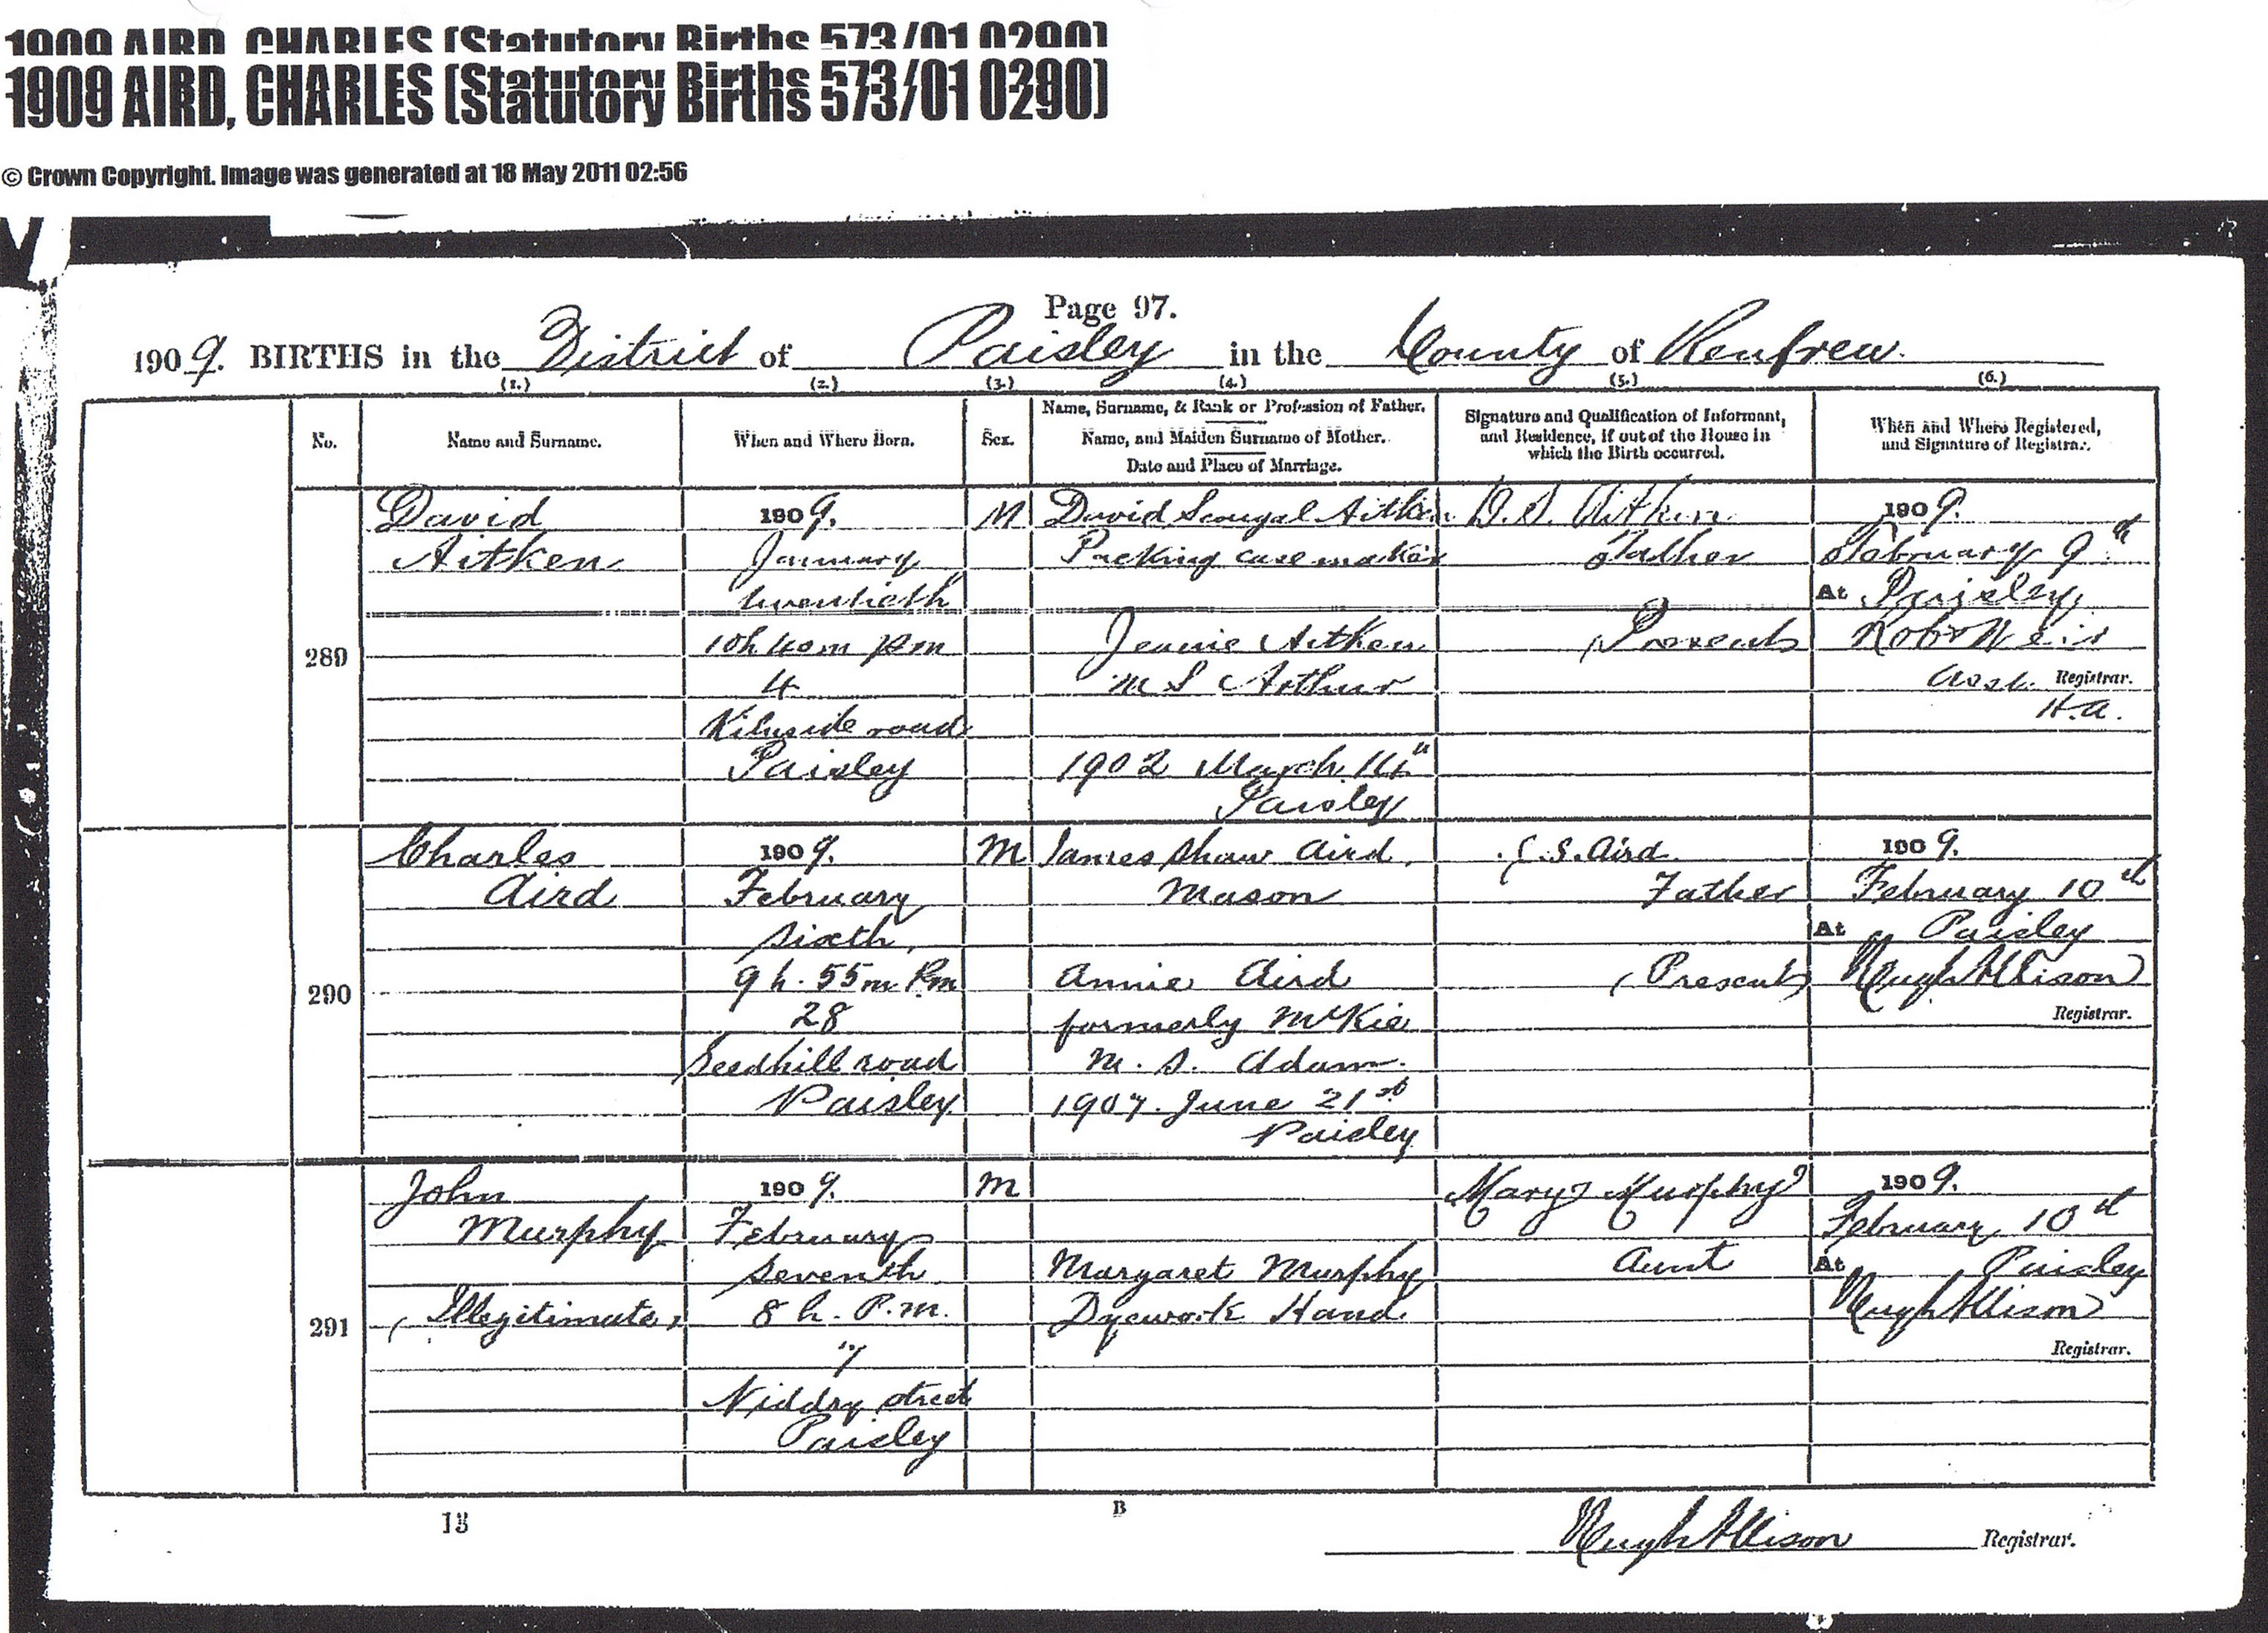 1909 AIRD, CHARLES (Statutory Births 573/01 0290)
1909 AIRD, CHARLES (Statutory Births 573/01 0290)
© Crown Copyright. Image was generated at 18 May 2011 02:56
Page 97.
1909. BIRTHS in the District of Paisley in the County of Renfrew.
(1.) (2.) (3.) (4.) (5.) (6.)
No.
Name and Surname.
When and Where Born.
Sex.
Name, Surname, & Rank or Profession of Father.
Name, and Maiden Surname of Mother.
Date and Place of Marriage.
Signature and Qualification of Informant,
and Residence, if out of the House in
which the Birth occurred.
When and Where Registered,
and Signature of Registrar.
289
David
Aitken
1909.
January
twentieth
10h 40m P.m
4
Kilnside road
Paisley
M
David Scougal Aitken
Packing case maker
Jeanie Aitken
M S Arthur
1902 March 14th
Paisley
D. S. Aitken
Father
(Present)
1909.
February 9th
At Paisley
Robt Weir
Asst. Registrar.
H.A.
290
Charles
Aird
1909.
February
sixth,
9 h. 55m P.m
28
Seedhill road
Paisley
M
James Shaw Aird,
Mason
Annie Aird
formerly McKie
M. S. Adam.
1907. June 21st
Paisley
J. S. Aird
Father
(Present)
1909.
February 10th
At Paisley
Hugh Allison
Registrar.
291
John
Murphy
(Illegitimate)
1909.
February
seventh
8 h. P.m.
7
Niddry street
Paisley
M
Margaret Murphy
Dyework Hand.
Mary Murphy
Aunt
1909.
February 10th
At Paisley
Hugh Allison
Registrar.
13
B
Hugh Allison Registrar.